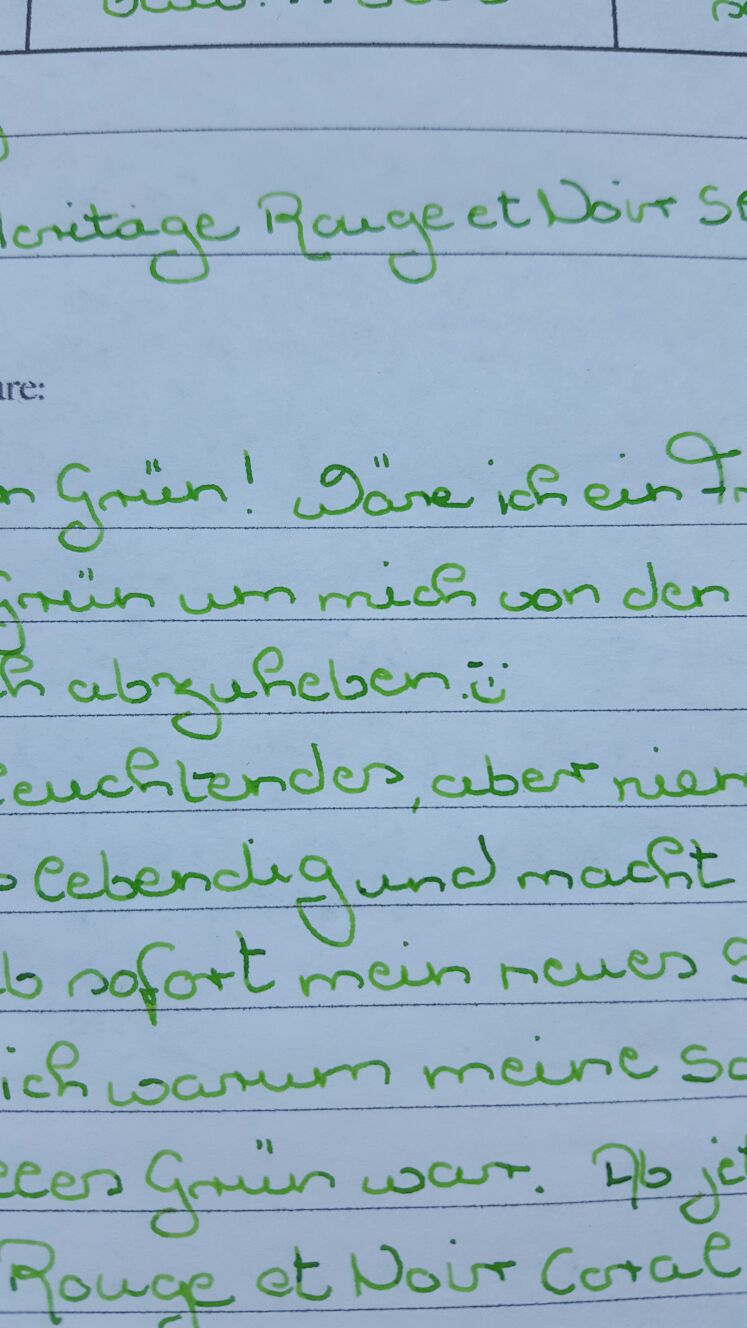 Heritage Rouge et Noir Sp
ure:
n Grün! Wäre ich ein Fr
Grün um mich von den
h abzuheben.
leuchtendes, aber nie
lebendig und macht
b sofort mein neues S
ich warum meine Sc
elles Grün war. Ab jet
Rouge et Noir Coral